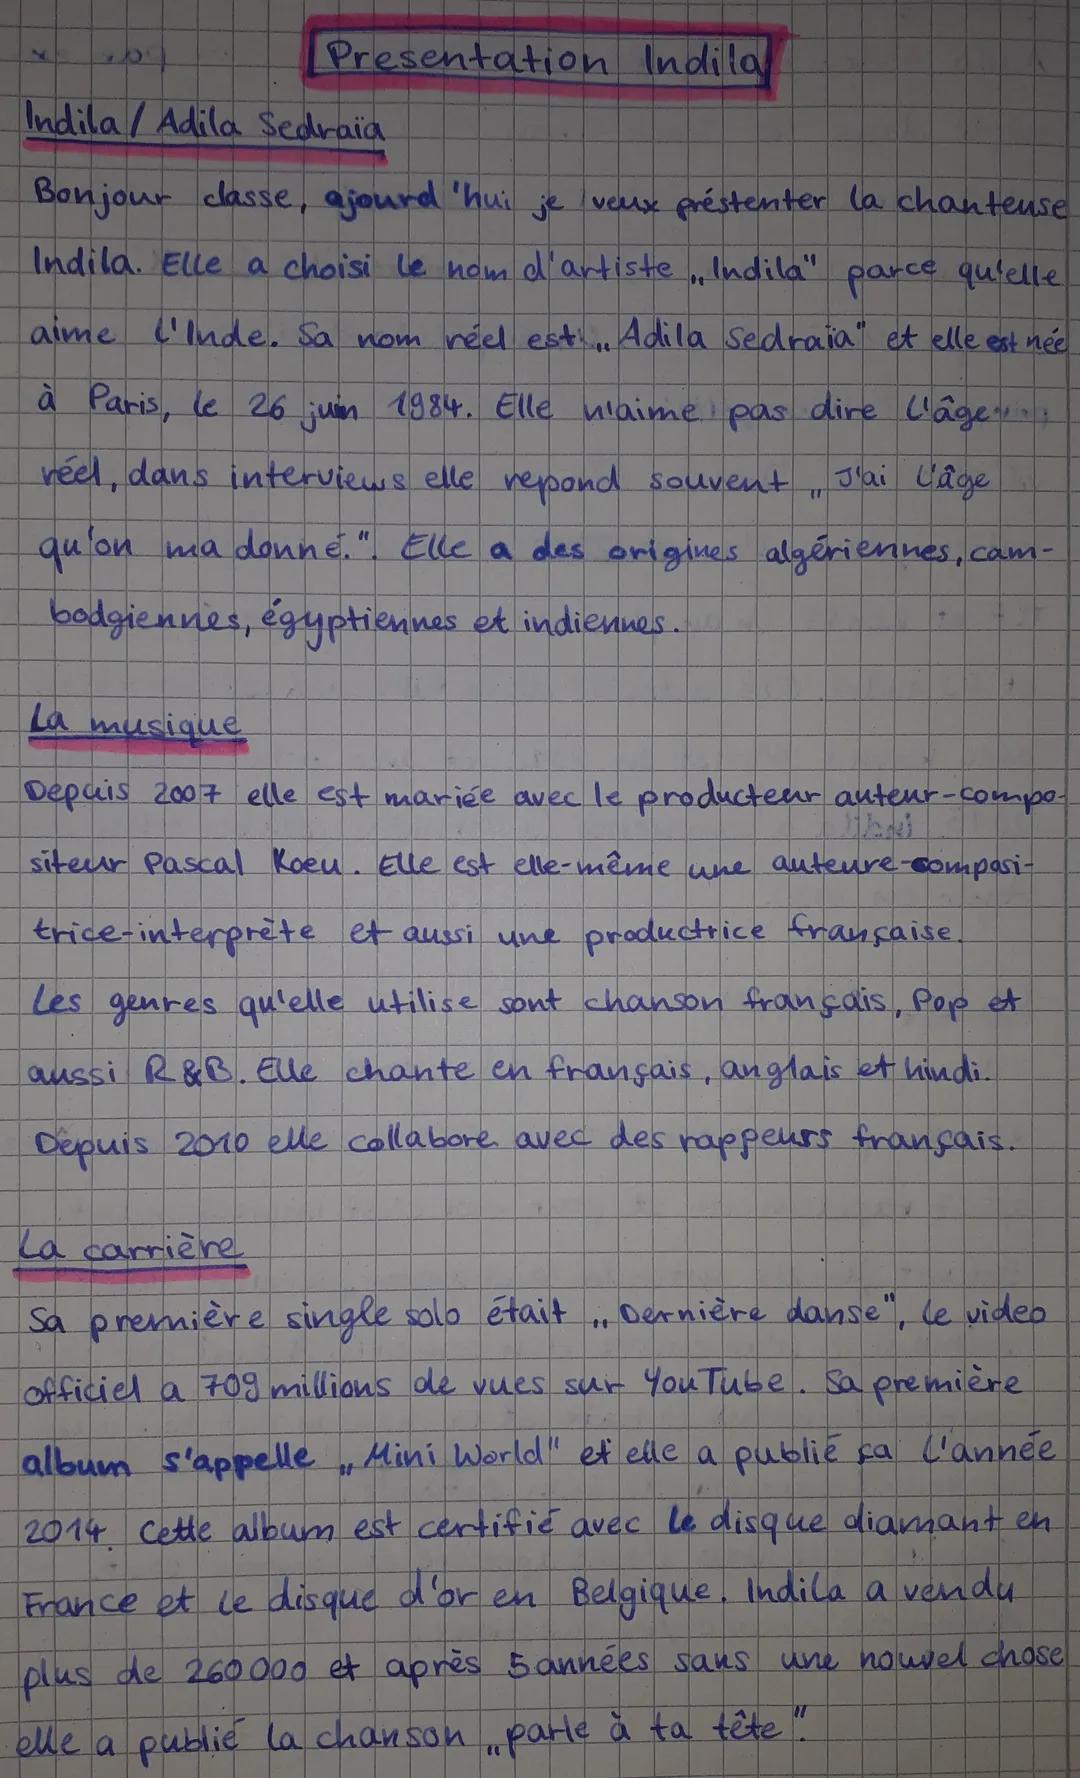 Presentation Indila
Indila / Adila Sedraïa
Bonjour classe, ajourd'hui je veux préstenter la chanteuse
Indila. Elle a choisi le nom d'artiste „Indila" parce qu'elle
aime l'Inde. Sa nom réel est „Adila Sedraïa" et elle est née
à Paris, le 26 juin 1984. Elle n'aime pas dire l'âge
réel, dans interviews elle repond souvent „J'ai l'âge
qu'on ma donné.". Elle a des origines algériennes, cam-
bodgiennes, égyptiennes et indiennes.
La musique
Depuis 2007 elle est mariée avec le producteur auteur-compo-
siteur Pascal Koeu. Elle est elle-même une auteure-composi-
trice-interprète et aussi une productrice française.
Les genres qu'elle utilise sont chanson français, Pop et
aussi R&B. Elle chante en français, anglais et hindi.
Depuis 2010 elle collabore avec des rappeurs français.
La carrière
Sa première single solo était „Dernière danse", le video
officiel a 709 millions de vues sur YouTube. Sa première
album s'appelle „Mini World" et elle a publié ça l'année
2014. Cette album est certifié avec le disque diamant en
France et le disque d'or en Belgique. Indila a vendu
plus de 260000 et après 5 années sans une nouvel chose
elle a publié la chanson „parle à ta tête".